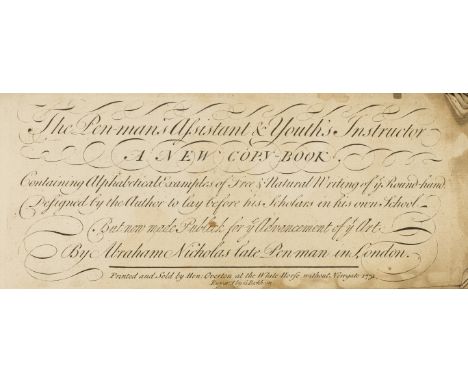 The Pen-man's Aſsistant & Youth's Instructor
A NEW COPY-BOOK
Containing Alphabetical Examples of Free & Natural Writing of yͤ Round-hand.
Deſigned by the Author to lay before his Scholars in his own School
But now made Publick for yͤ Advancement of yͤ Art
By Abraham Nicholas late Pen-man in London.
Printed and Sold by Hen: Overton at the White Horse without Newgate